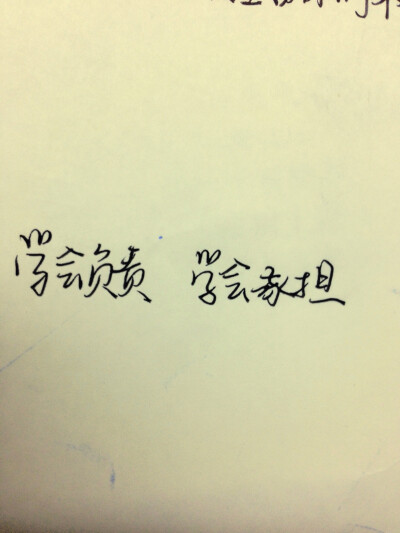 学会负责 学会承担